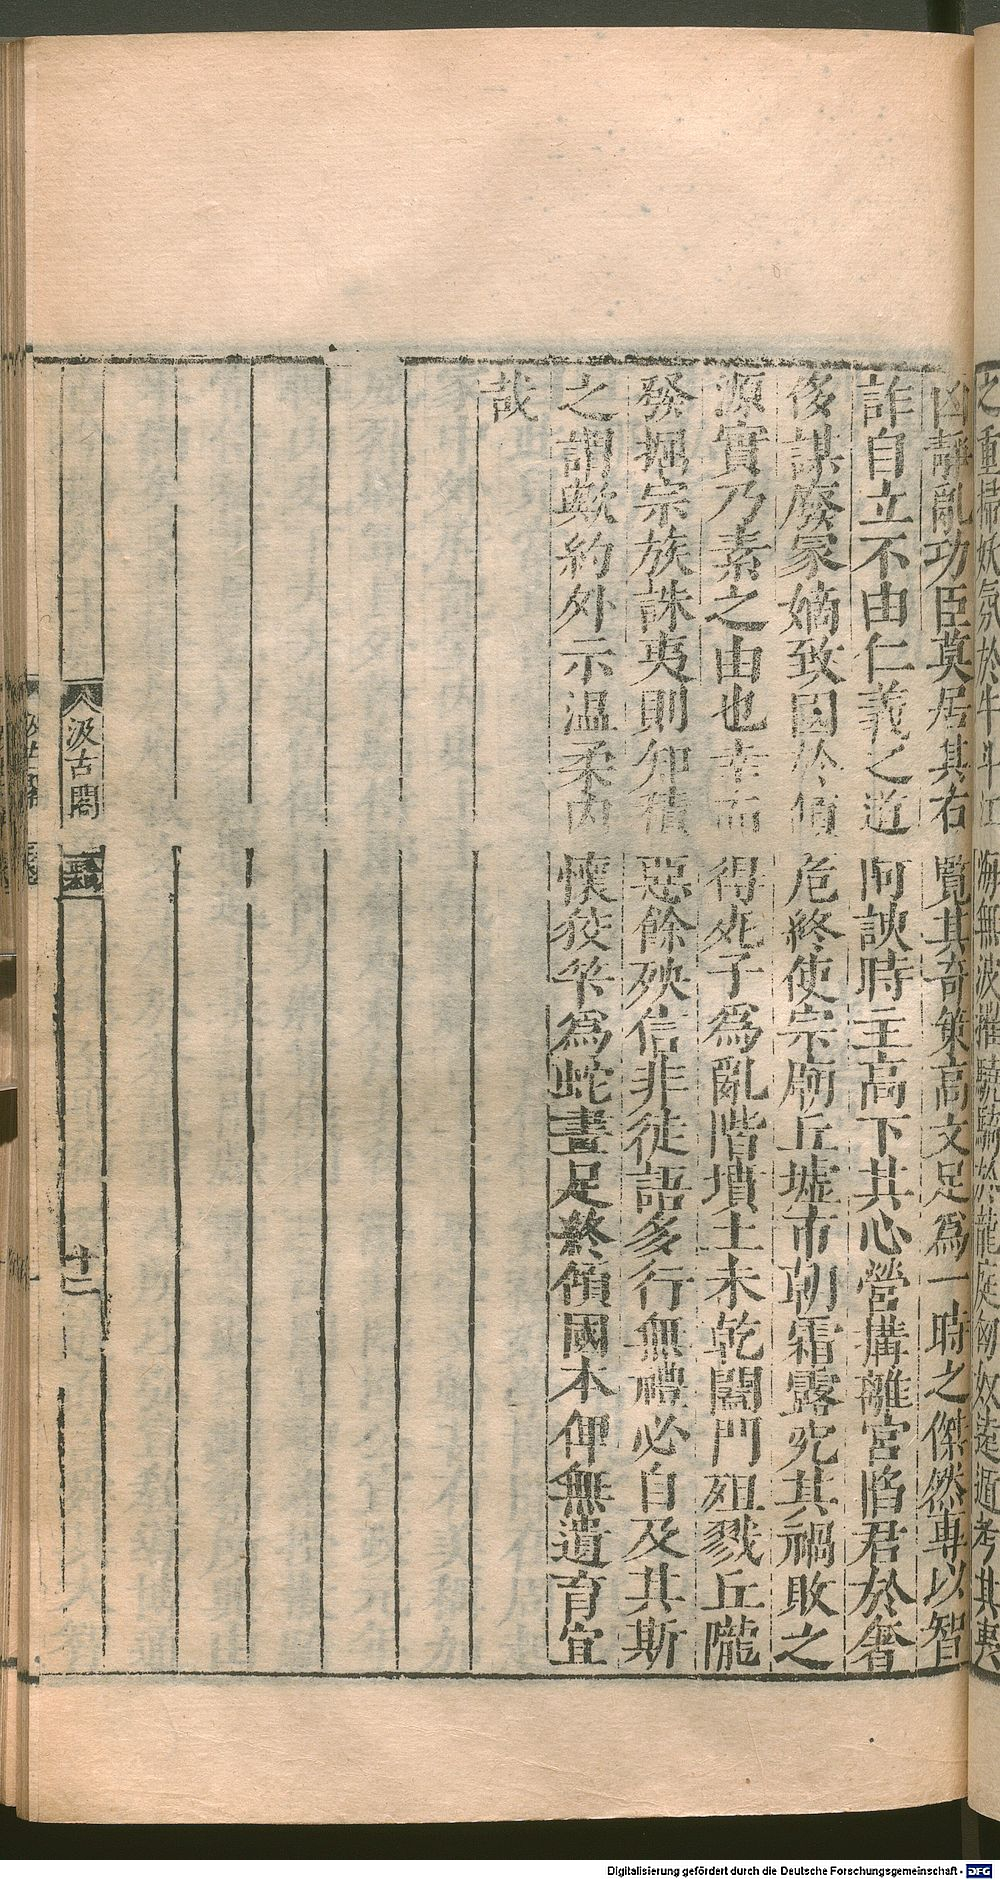 之重掃妖氛於牛斗江海無波摧驍騎於龍庭匈奴遠遁考其夷
凶靜亂功臣莫居其右覽其奇策高文足爲一時之傑然專以智
詐自立不由仁義之道阿諛時主高下其心營搆離宮陷君於奢
侈謀廢冢嫡致國於傾危終使宗廟丘墟市朝霜露究其禍敗之
源實乃素之由也幸而得死子爲亂階墳土未乾闔門殂戮丘隴
發掘宗族誅夷則知積惡餘殃信非徒語多行無禮必自及其斯
之謂歟約外示温柔内懷狡筭爲蛇畫足終傾國本俾無遺育宜
哉
汲古閣
十二
Digitalisierung gefördert durch die Deutsche Forschungsgemeinschaft - DFG